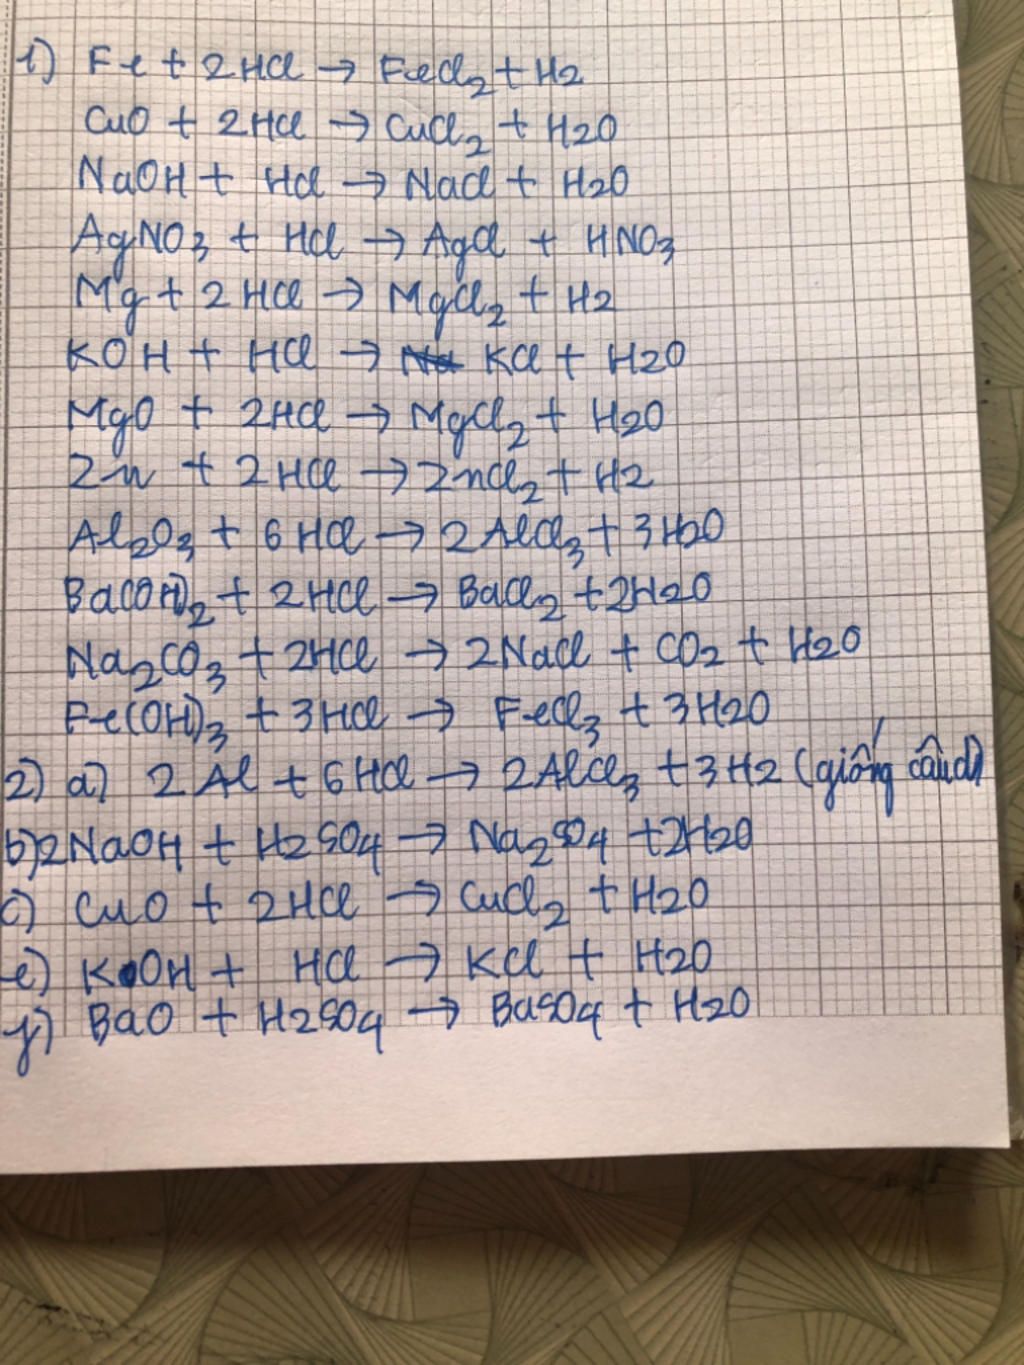 1) Fe + 2HCl → FeCl2 + H2
CuO + 2HCl → CuCl2 + H2O
NaOH + HCl → NaCl + H2O
AgNO3 + HCl → AgCl + HNO3
Mg + 2HCl → MgCl2 + H2
KOH + HCl → KCl + H2O
MgO + 2HCl → MgCl2 + H2O
Zn + 2HCl → ZnCl2 + H2
Al2O3 + 6HCl → 2AlCl3 + 3H2O
Ba(OH)2 + 2HCl → BaCl2 + 2H2O
Na2CO3 + 2HCl → 2NaCl + CO2 + H2O
Fe(OH)3 + 3HCl → FeCl3 + 3H2O
2) a) 2Al + 6HCl → 2AlCl3 + 3H2 (giống câu d)
b) 2NaOH + H2SO4 → Na2SO4 + 2H2O
c) CuO + 2HCl → CuCl2 + H2O
e) KOH + HCl → KCl + H2O
f) BaO + H2SO4 → BaSO4 + H2O